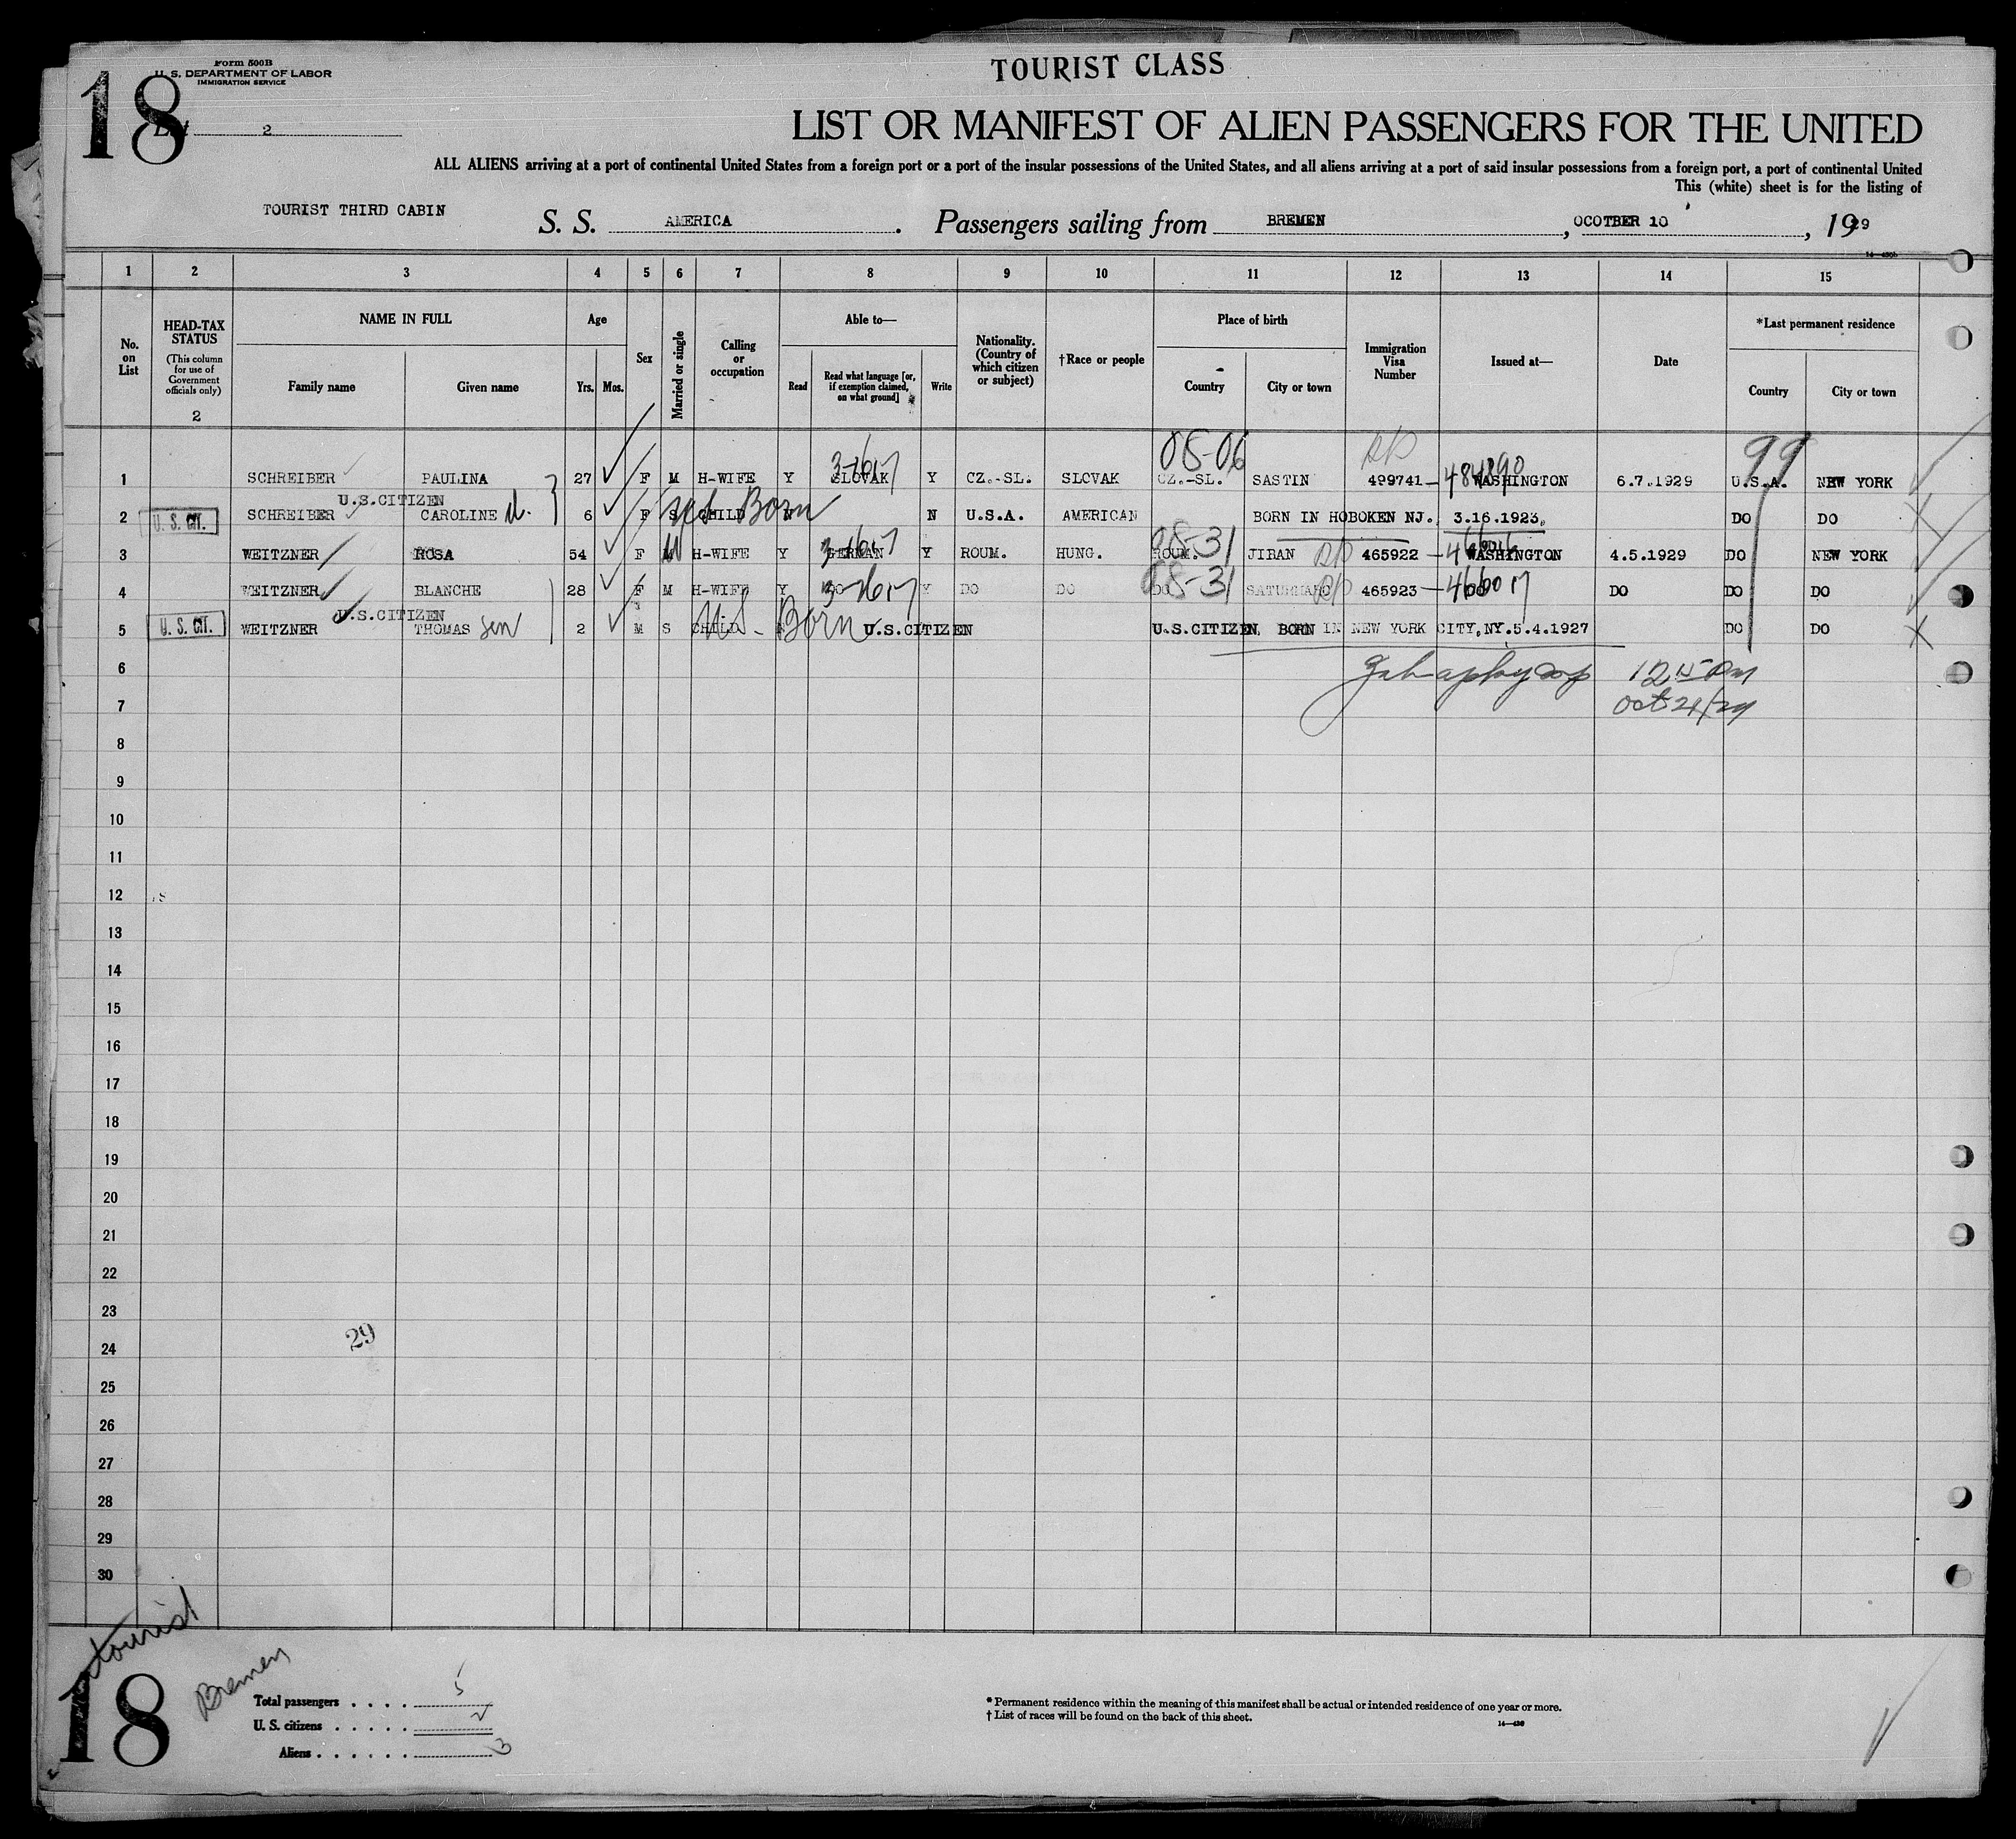 Form 500B
U. S. DEPARTMENT OF LABOR
IMMIGRATION SERVICE
18
2
TOURIST CLASS
LIST OR MANIFEST OF ALIEN PASSENGERS FOR THE UNITED
ALL ALIENS arriving at a port of continental United States from a foreign port or a port of the insular possessions of the United States, and all aliens arriving at a port of said insular possessions from a foreign port, a port of continental United
This (white) sheet is for the listing of
TOURIST THIRD CABIN S. S. AMERICA. Passengers sailing from BREMEN, OCOTBER 10, 1929
1 2 3 4 5 6 7 8 9 10 11 12 13 14 15
No. on List
HEAD-TAX STATUS (This column for use of Government officials only) 2
NAME IN FULL Family name Given name
Age Yrs. Mos.
Sex
Married or single
Calling or occupation
Able to— Read Read what language [or, if exemption claimed, on what ground] Write
Nationality. (Country of which citizen or subject)
†Race or people
Place of birth Country City or town
Immigration Visa Number
Issued at—
Date
*Last permanent residence Country City or town
08-06 99
1 SCHREIBER PAULINA 27 F M H-WIFE Y SLOVAK Y CZ.-SL. SLOVAK CZ.-SL. SASTIN 499741 484890 WASHINGTON 6.7.1929 U.S.A. NEW YORK
U.S.CITIZEN
2 U. S. CIT. SCHREIBER CAROLINE 6 F S CHILD US Born N N U.S.A. AMERICAN BORN IN HOBOKEN NJ. 3.16.1923. DO DO
3 WEITZNER ROSA 54 F M H-WIFE Y GERMAN Y ROUM. HUNG. ROUM. 08-31 JIBAN 465922 WASHINGTON 4.5.1929 DO NEW YORK
4 WEITZNER BLANCHE 28 F M H-WIFE Y DO Y DO DO DO 08-31 465923 466017 DO DO DO
U.S.CITIZEN
5 U. S. CIT. WEITZNER THOMAS 2 M S CHILD US Born U.S.CITIZEN U.S.CITIZEN, BORN IN NEW YORK CITY, NY. 5.4.1927 DO DO
6 12 15 PM
7 Oct 21/29
8
9
10
11
12
13
14
15
16
17
18
19
20
21
22
23
29
24
25
26
27
28
29
30
tourist
18
Bremen
Total passengers . . . . 5
U. S. citizens . . . . . 2
Aliens . . . . . . 3
* Permanent residence within the meaning of this manifest shall be actual or intended residence of one year or more.
† List of races will be found on the back of this sheet.
14—430